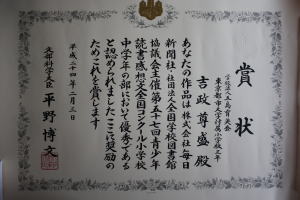 賞状
学校法人五島育英会
東京都市大学付属小学校三年
吉政尊盛殿
あなたの作品は株式会社毎日
新聞社・公益社団法人全国学校図書館
協議会主催第五十七回青少年
読書感想文全国コンクール小学校
中学年の部において優秀である
と認められましたここに奨励の
ためこれを賞します
平成二十四年二月三日
文部科学大臣 平野博文